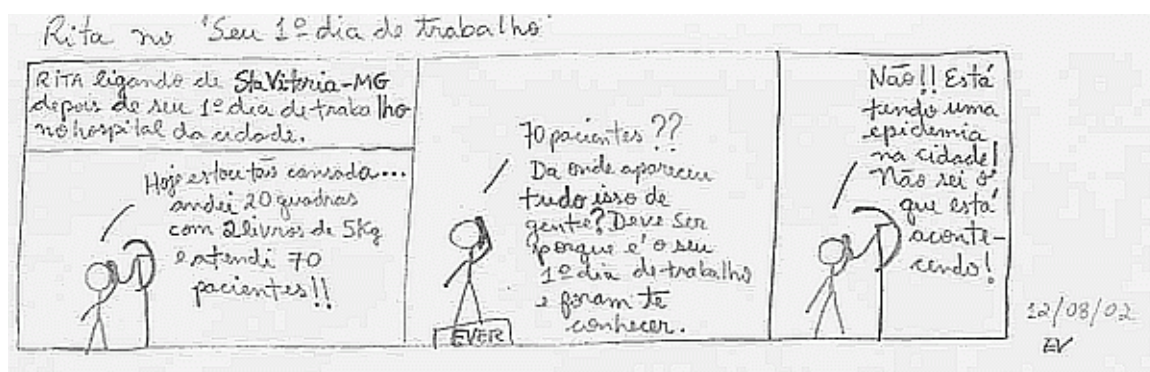 Rita no "Seu 1º dia de trabalho"
RITA ligando de Sta Vitória-MG
depois de seu 1º dia de trabalho
no hospital da cidade.
Hoje estou tão cansada...
andei 20 quadras
com 2 livros de 5Kg
e atendi 70
pacientes!!
70 pacientes??
Da onde apareceu
tudo isso de
gente? Deve ser
porque é o seu
1º dia de trabalho
e foram te
conhecer.
EVER
Não!! Está
tendo uma
epidemia
na cidade!
Não sei o
que está
aconte-
cendo!
12/08/02
EV